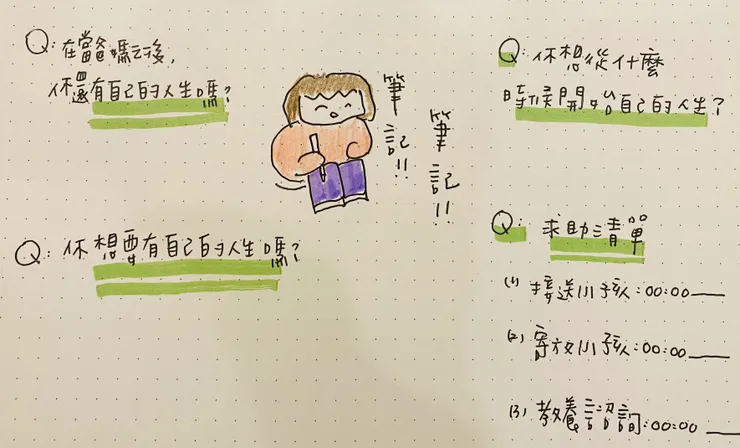 Q: 在當爸媽之後,
你還有自己的人生嗎?
筆記!!
筆記!!
Q: 你想要有自己的人生嗎?
Q: 你想從什麼
時候開始自己的人生?
Q: 求助清單
(1) 接送小孩:00:00
(2) 寄放小孩:00:00
(3) 教養諮詢:00:00